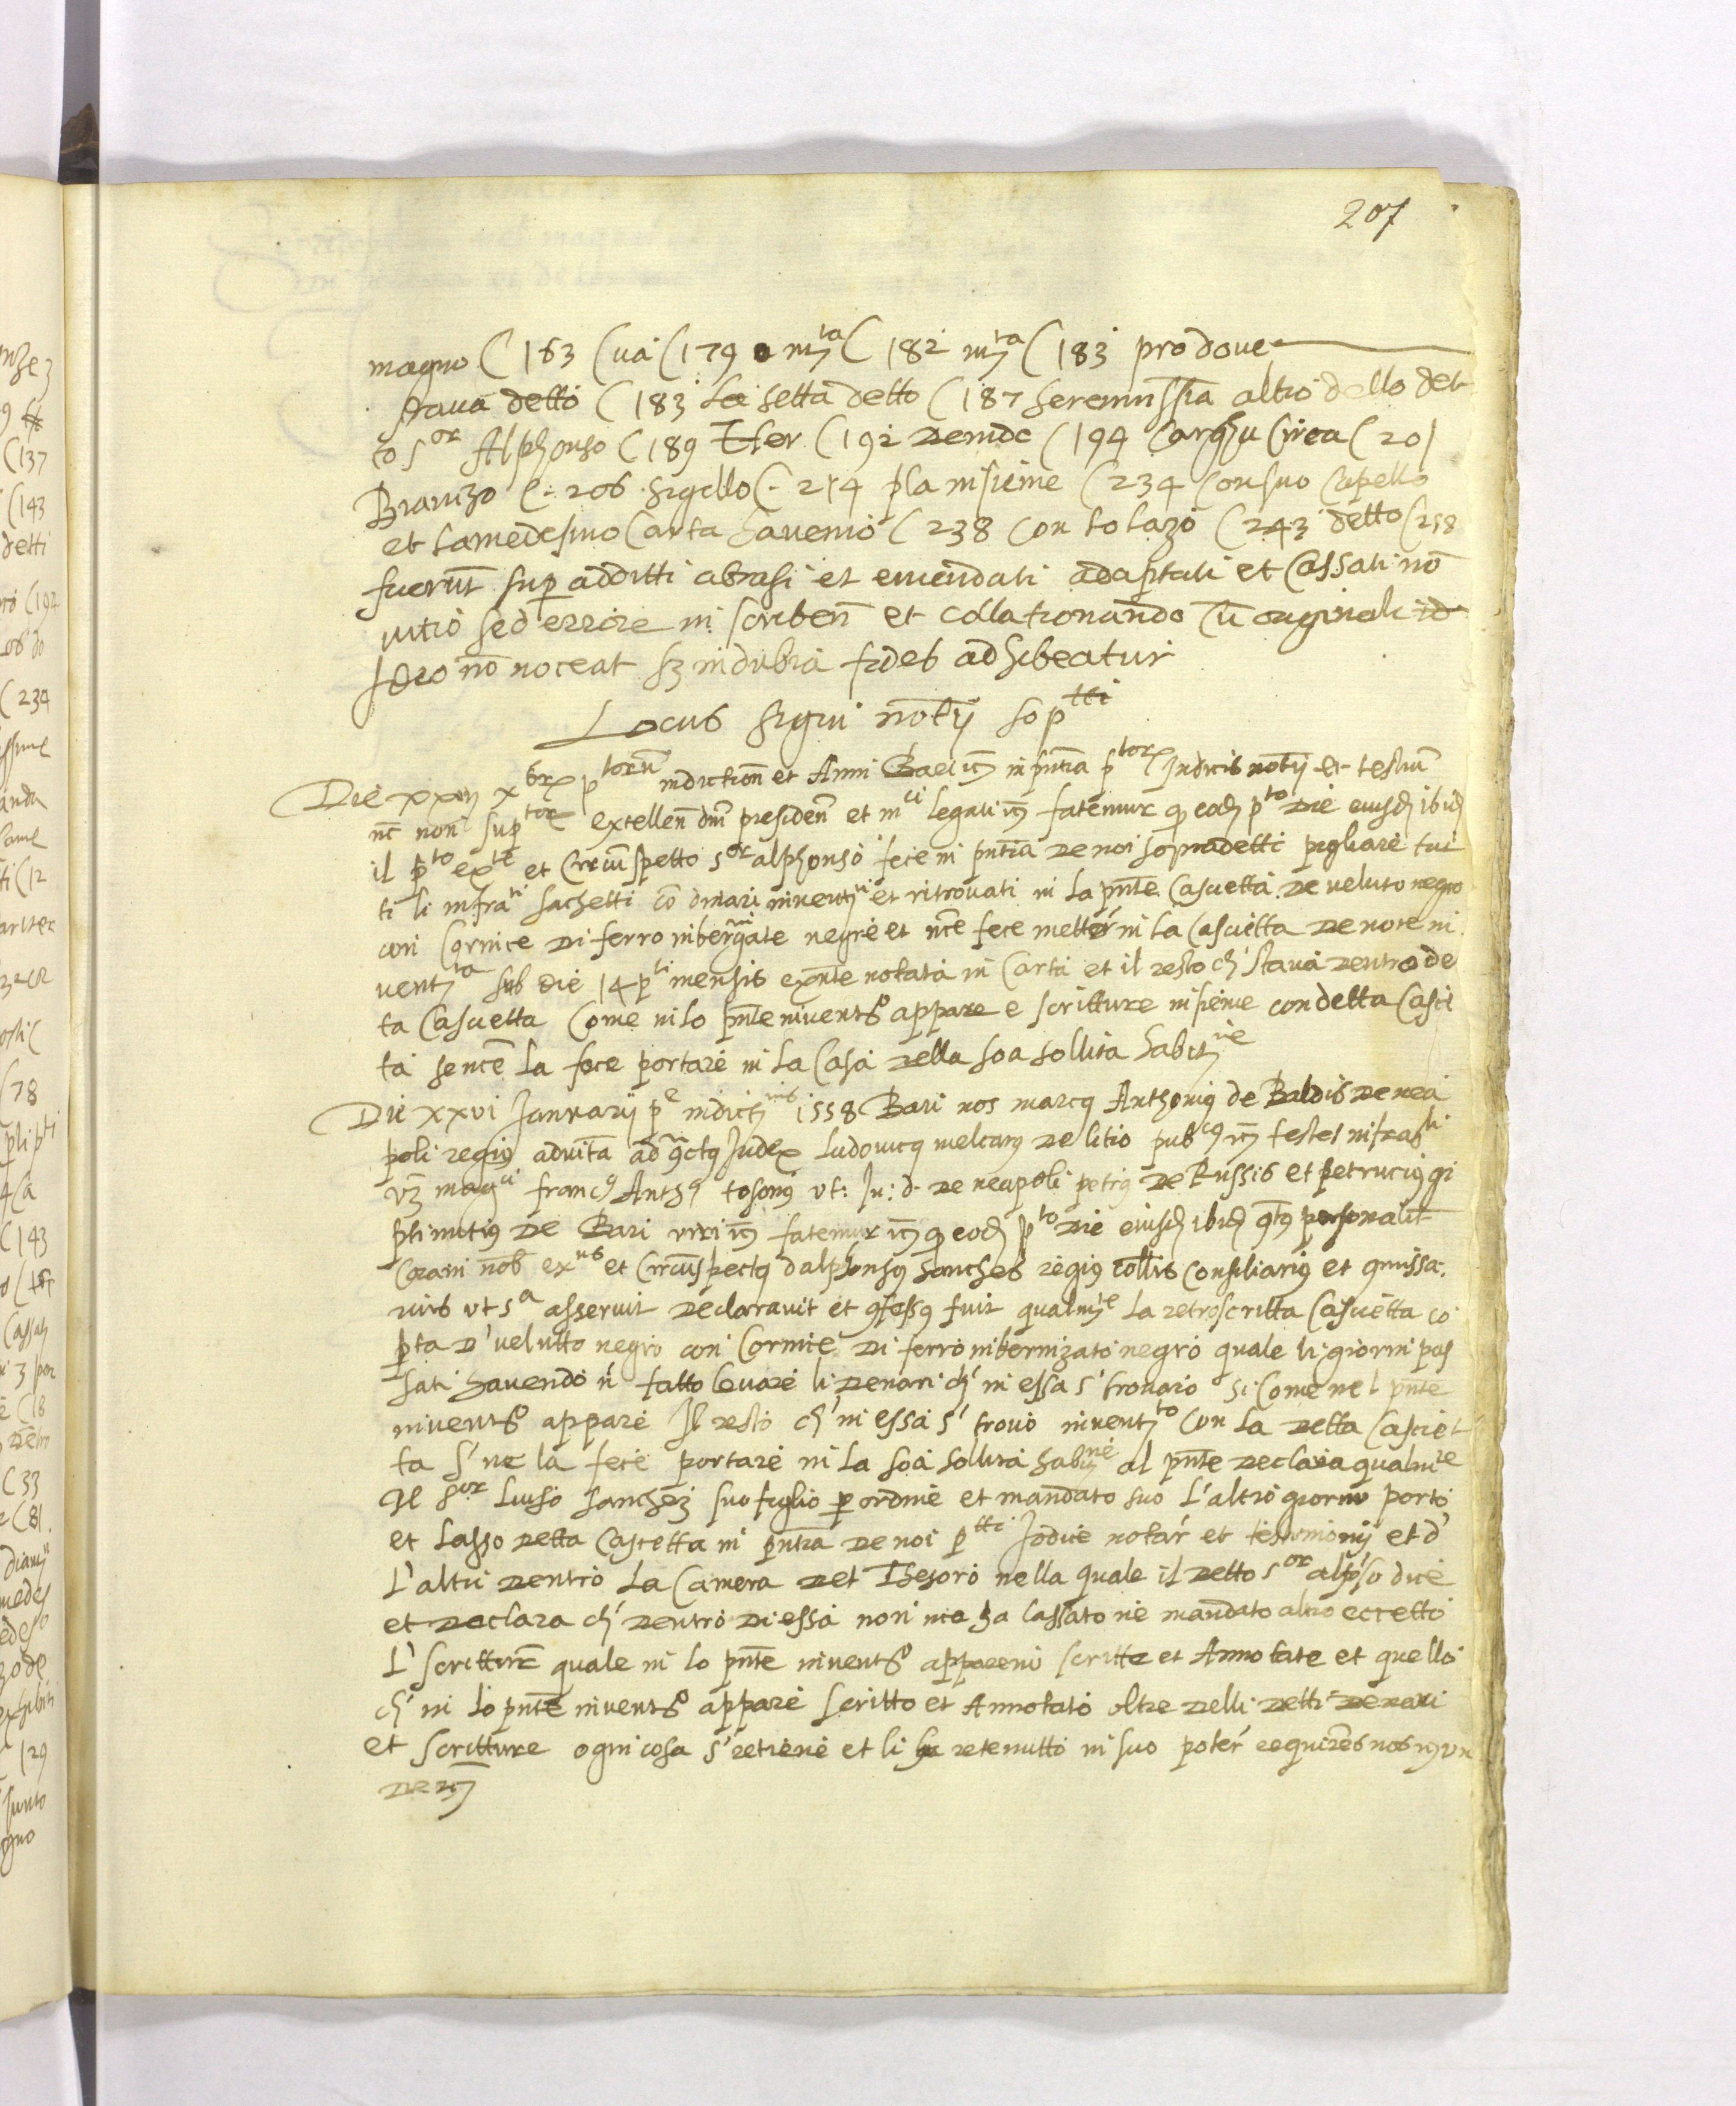 207
magno ( 163 ( va ( 179 m^ta ( 182 m^ta ( 183 pro dove
stava detto ( 183 la setta detto ( 187 serenissia altro dello det
to s^or Alphonso ( 189 ( 192 ( 194 Circa ( 201
( 206 sigello ( 214 p la insieme ( 234 Con suo Capello
et la medesmo Carta havemo ( 238 Con lo lazo ( 243 detto ( 258
fuerūt sup additti abrasi et emendati adaptati et Cassati nō
vitio sed errore in scribeñ et collationando Cū originali
Ideo nō noceat sz indubia fides adhibeatur
Locus signi notȳ sop^tti
Die x^br p^torū indictioñ et Anni Bari in pñtia p^tor Judicis notȳ et testiū
nc noñ sup^tor excelleñ dñi presideñ et m^ci legati fatemur q eod p^to die eiusd ibid
il p^to ex^te et Circūspetto s^or alphonso fece in pñtia de noi sopradetti pigliare tut
ti li infra^ti sachetti cō dinari invent^ti et ritrovati in la pñte Cascetta de veluto negro
con Cornice di ferro negre et nce fece metter in la Cascietta de note in
vent^ta sub die 14 p^ti mensis notata in Carta et il resto ch' stava dentro de
ta Cascetta Come in lo pñte invent^o appare e scritture insieme con detta Casce
ta se nce la fece portare in la Casa della soa sollita habit^ne
Die xxvi Januarij p^e indict^nis 1558 Bari nos marcq Anthoniq de Baldis de nea
poli regiq ad vitā ad Judex Ludovicq de litio pub^cq testes infras^ti
vz mag^ci franc^q Anth^q tosonq ut: Ju: d. de neapoli petrq de Russis et petruciq gi
de Bari viri fatemur q eod p^to die eiusd ibid personalit
Coram nob ex^ns et Circūspectq d alphonsq sanches regiq collis Consiliariq et
ut s^a asseruit declaravit et fuit qualm^te la retroscritta Cascietta co
pta d' velutto negro con Cornice di ferro nibernizato negro quale li giorni pas
sati havendo fatto levare li denari ch' in essa s' trovaro Si Come nel pñte
invent^o appare Il resto ch' in essa s' trovò invent^to Con la detta Casciet
ta s' ne la fece portare in la soa sollita habit^ne al pñte declara qualm^te
Il s^or Luiso sanchez suo figlio p ordine et mandato suo L'altro giorno porto
et lasso detta Cascetta in pñtia de noi p^tti Jodice notar et testimonij et d'
L'altri dentro la Camera del Thesoro nella quale il detto s^or alp'so dice
et declara ch' dentro di essa non nce ha lassato ne mandato altro eccetto
L' scritture quale in lo pñte invent^o appareno scritte et Annotate et quello
ch' in lo pñte invent^o appare scritto et Annotato oltre delli detti denari
et scritture ogni cosa s' retiene et li ha retenutto in suo poter requirens nos
de